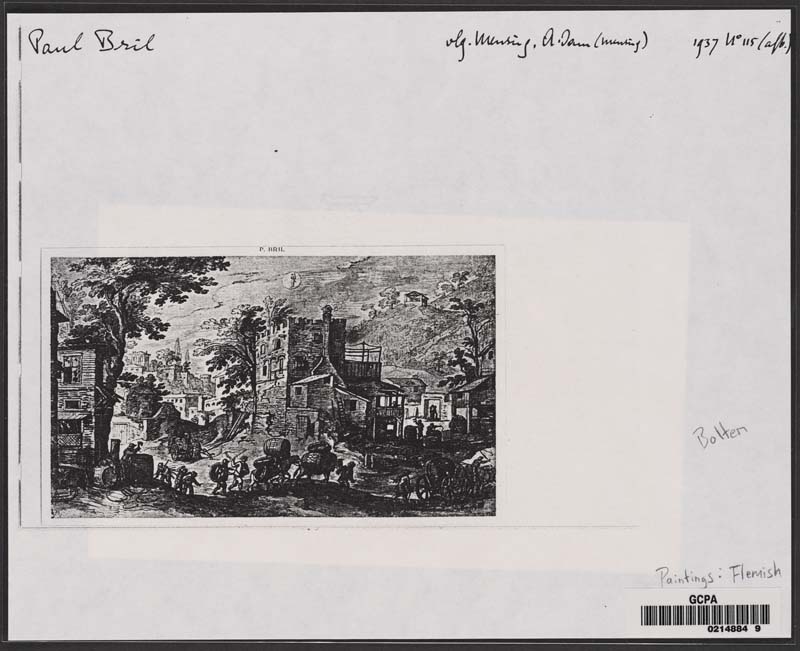 Paul Bril
vlg. Mensing, A.Dam (Mensing) 1937 No 115 (afb.)
P. BRIL
Bolten
Paintings: Flemish
GCPA
0214884 9